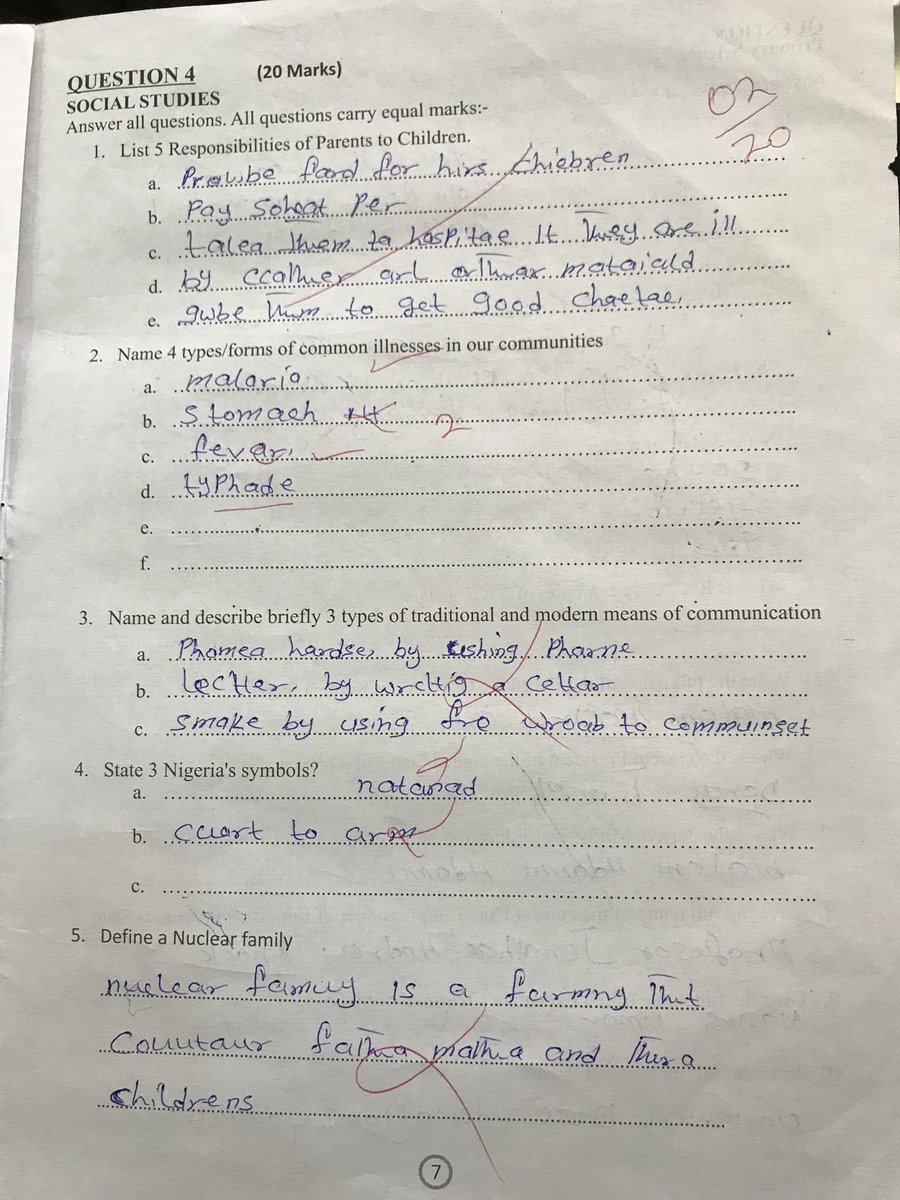 QUESTION 4 (20 Marks)
SOCIAL STUDIES
Answer all questions. All questions carry equal marks:-
02/20
1. List 5 Responsibilities of Parents to Children.
a. Prowbe fard for hirs Chiebren
b. Pay Sohoat Per
c. talea them ta haspitae It They are ill
d. by ccalher arl arthar mataiald
e. gwbe thim to get good chaetae,
2. Name 4 types/forms of common illnesses in our communities
a. malaria
b. Stomaeh
2
c. fevar,
d. tyPhade
e.
f.
3. Name and describe briefly 3 types of traditional and modern means of communication
a. Phomea hardse, by ushing Pharne
b. lecHer, by wrcttig a Cettar
c. smake by using fro wroab to commuinset
4. State 3 Nigeria's symbols?
a. natanad
b. cuart to arm
c.
5. Define a Nuclear family
nuclear famuy is a farmng That
Couutaur fathea mathea and Thera
childrens
7